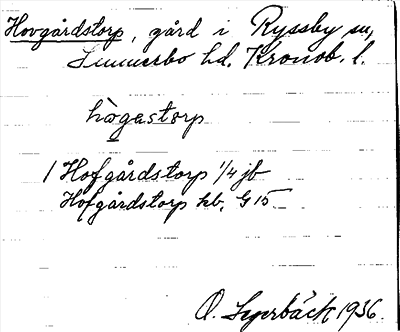 Hovgårdstorp, gård i Ryssby sn,
Sunnerbo hd. Kronob. l.
hògastorp
1 Hofgårdstorp 1/4 jb
Hofgårdstorp kb. G 15
O. 1936.